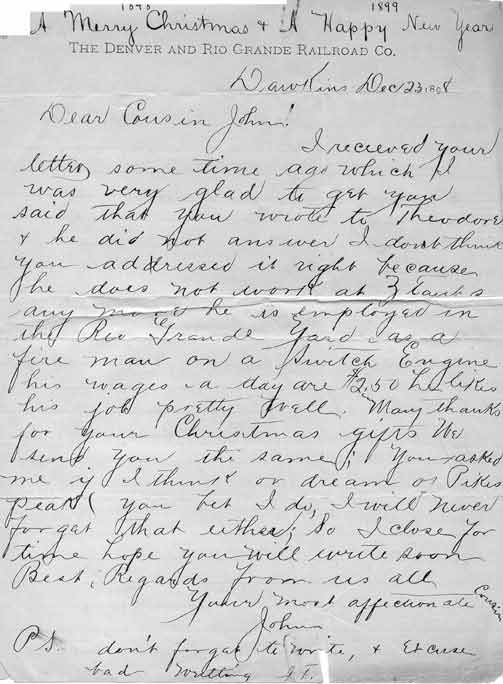 1898 1899
A Merry Christmas & A Happy New Year
THE DENVER AND RIO GRANDE RAILROAD CO.
Dawkins Dec 23 1898
Dear Cousin John!
I recieved your
letter some time ago which I
was very glad to get you
said that you wrote to Theodore
& he did not answer I don't think
you addressed it right because
he does not work at
any more he is employed in
the Rio Grande Yard as a
fire man on a Switch Engine
his wages a day are $2.50 he likes
his job pretty well. Many thanks
for your Christmas gifts We
send you the same; You asked
me if I think or dream of Pikes
Peak you bet I do, I will never
forget that either; So I close for
time hope you will write soon
Best, Regards from us all
Your most affectionate Cousin
John
P.S. don't forget to write, & Excuse
bad writting